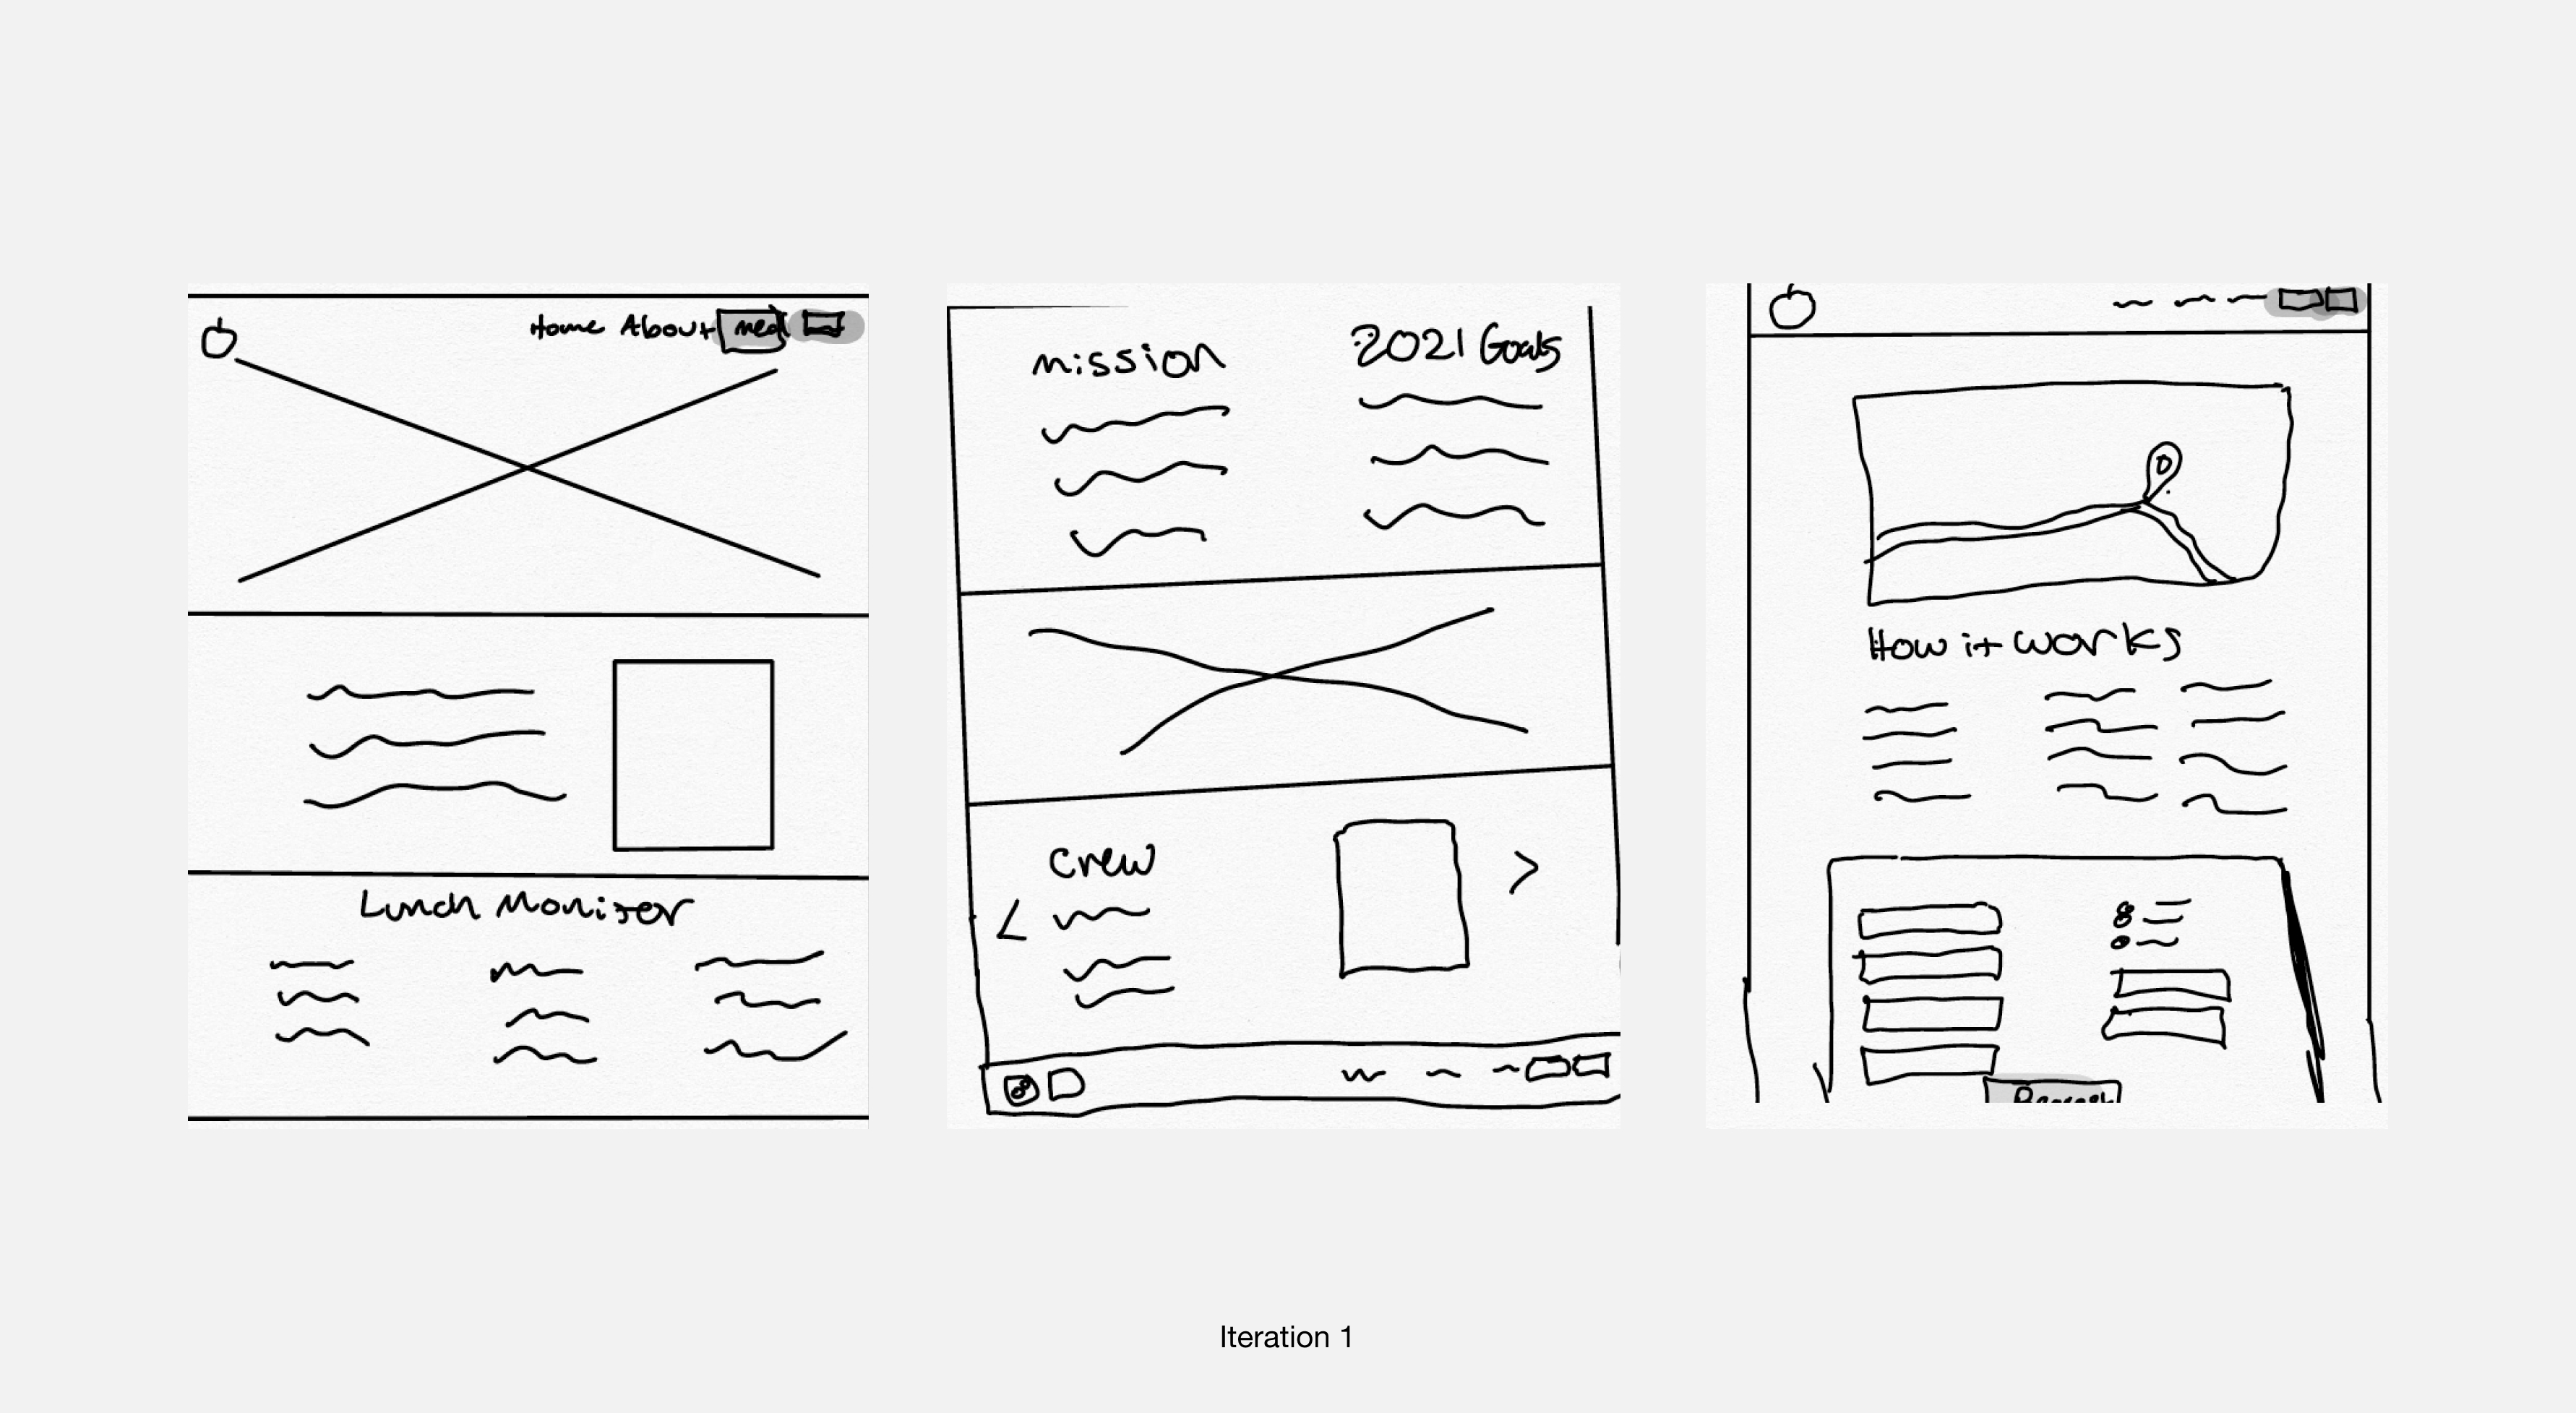 Home About
Lunch Monitor
mission
2021 Goals
Crew
How it works
Iteration 1